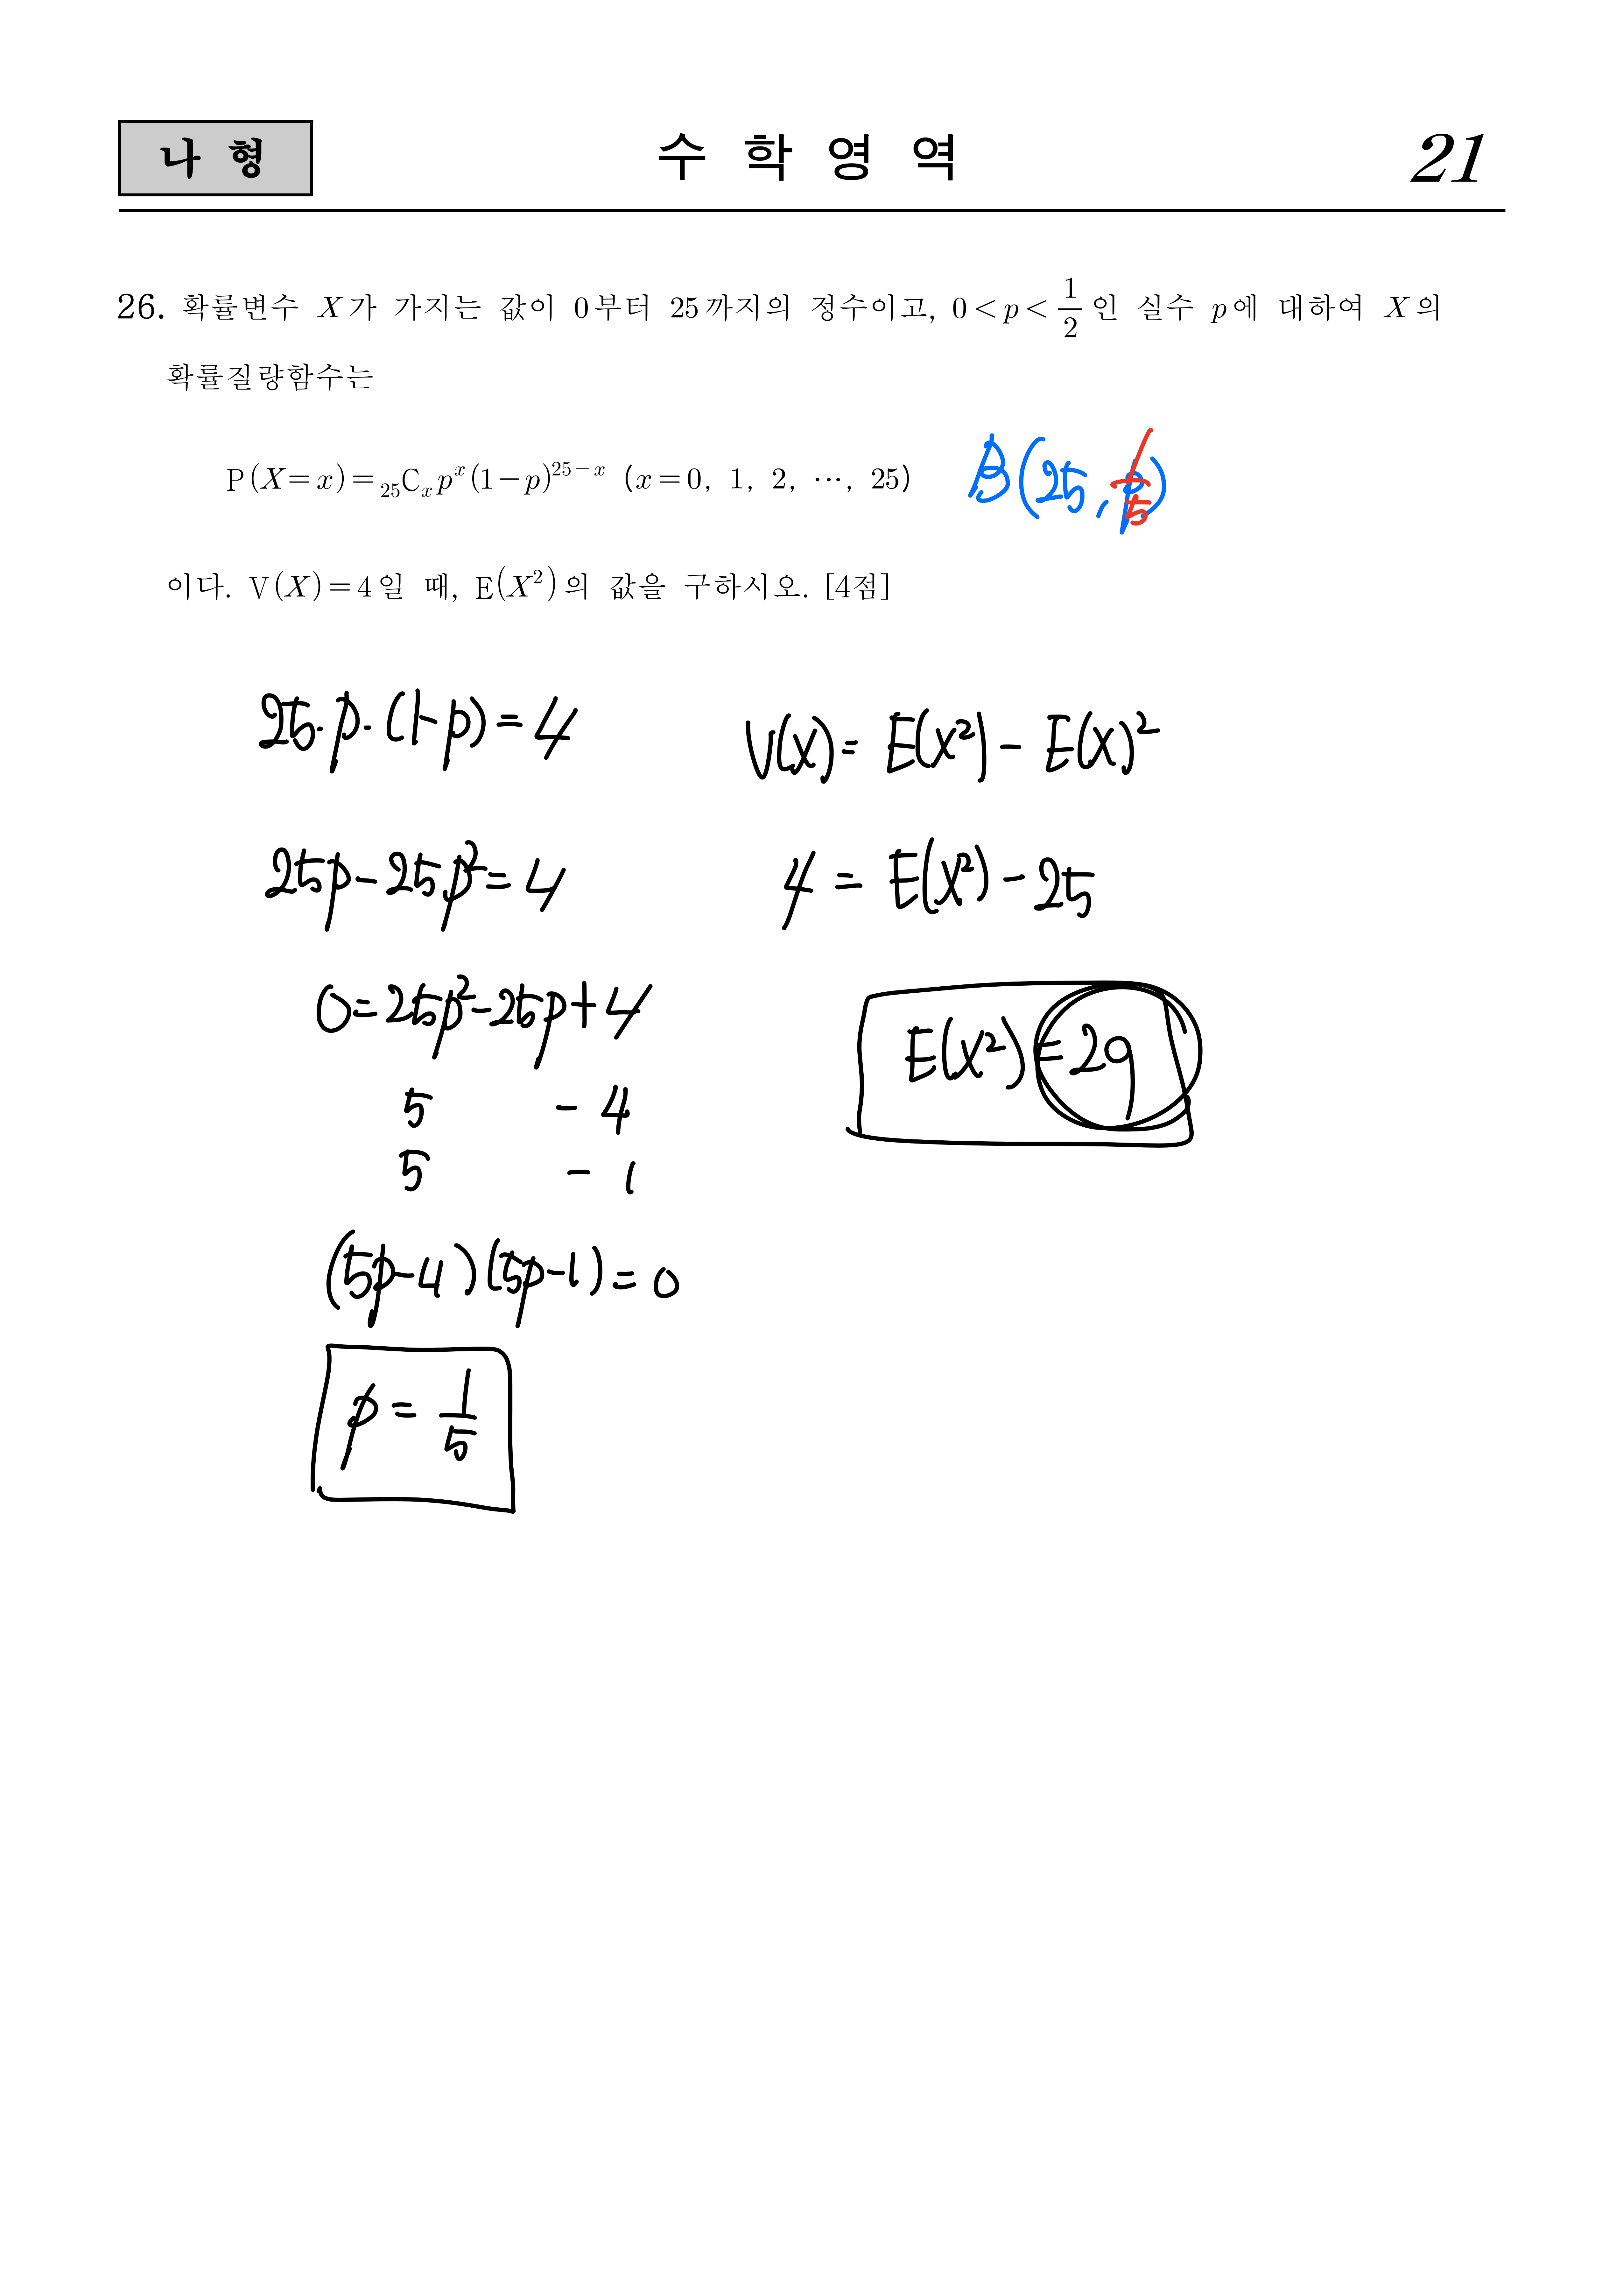 나 형
수 학 영 역
21
26. 확률변수 X가 가지는 값이 0부터 25까지의 정수이고, 0<p<1/2인 실수 p에 대하여 X의
확률질량함수는
P(X=x)=₂₅Cₓpˣ(1-p)²⁵⁻ˣ (x=0, 1, 2, ⋯, 25)
B(25, p) 1/5
이다. V(X)=4일 때, E(X²)의 값을 구하시오. [4점]
25·p·(1-p)=4
25p-25p²=4
0=25p²-25p+4
5 -4
5 -1
(5p-4)(5p-1)=0
p=1/5
V(X)=E(X²)-E(X)²
4=E(X²)-25
E(X²)=29